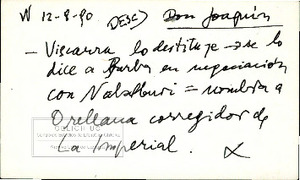 W 12-8-90 DESC) Don Joaquín
- Viscarra lo destituye → se lo
dice a Barba en negociación
con Nabalburi = nombra a
Orellana corregidor de
La Imperial. X